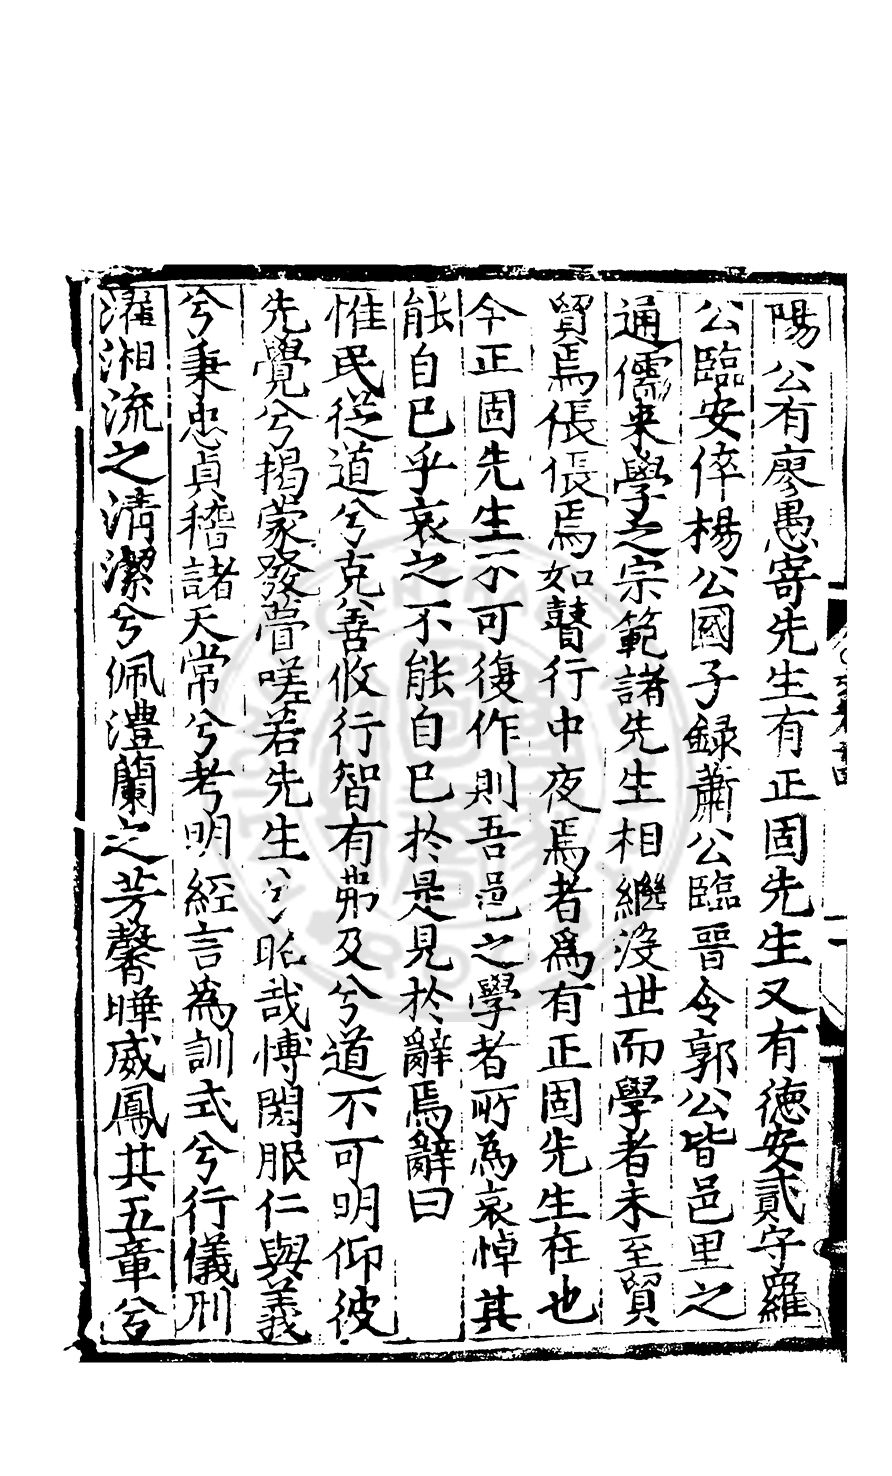 陽公有廖愚寄先生有正固先生又有德安貳守羅
公臨安倅楊公國子録蕭公臨晉令郭公皆邑里之
通儒来學之宗範諸先生相繼没世而學者未至貿
貿焉倀倀焉如瞽行中夜焉者為有正固先生在也
今正固先生不可復作則吾邑之學者所為哀悼其
能自已乎哀之不能自已於是見於辭焉辭曰
惟民從道兮克善攸行智有弗及兮道不可明仰彼
先覺兮揭蒙發瞢嗟若先生兮昭哉愽閎服仁與義
兮秉忠貞稽諸天常兮考明經言為訓式兮行儀刑
濯湘流之清潔兮佩澧蘭之芳馨曄威鳳其五章兮